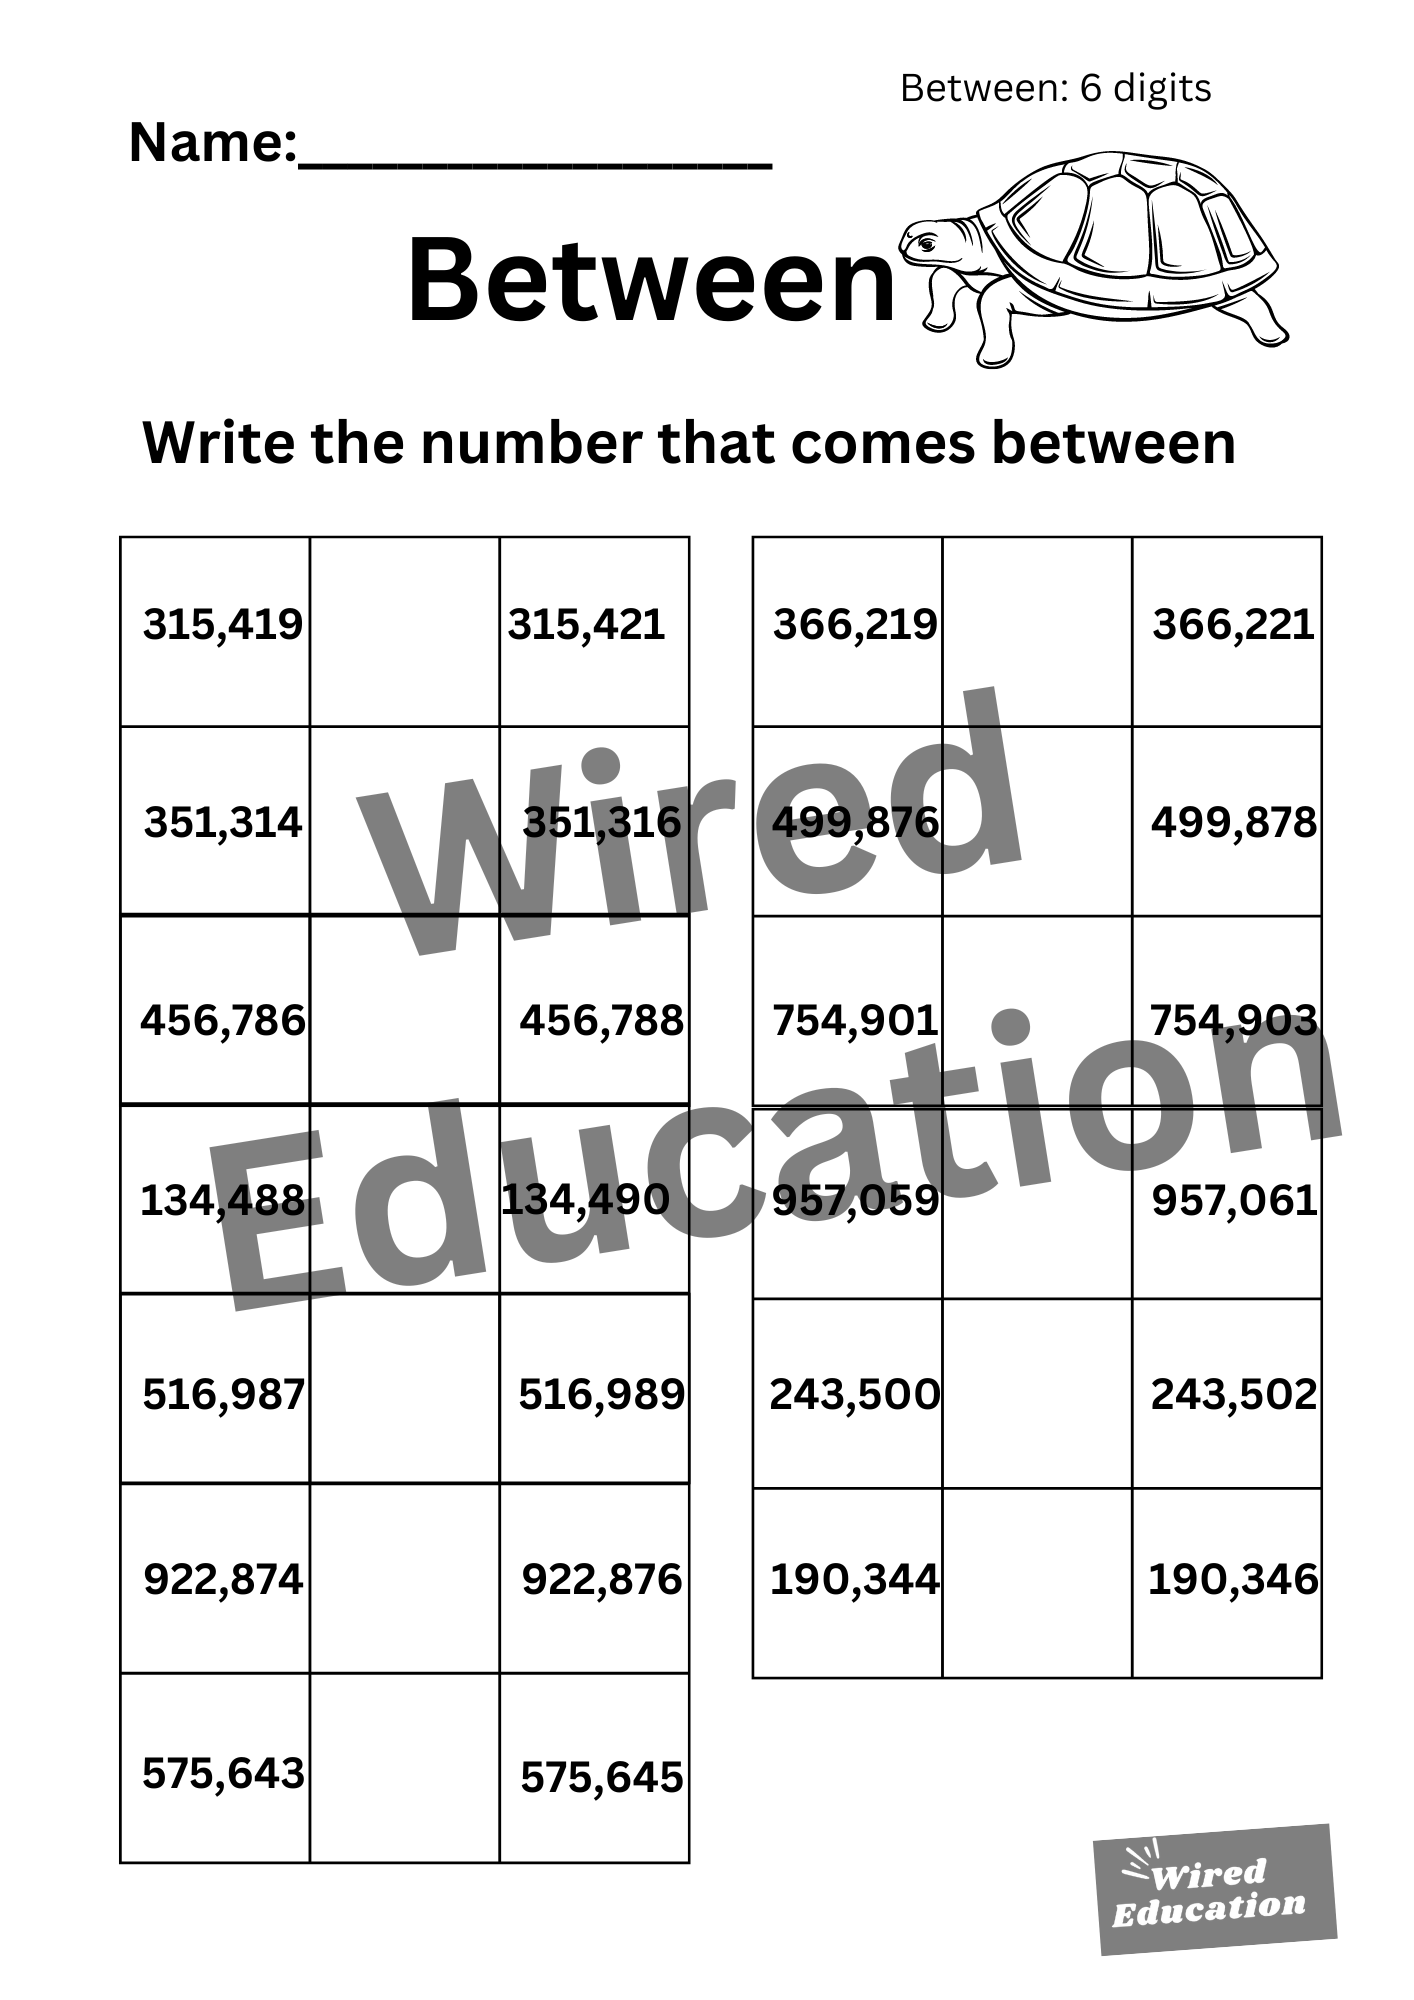 Between: 6 digits
Name:___________________
Between
Write the number that comes between
315,419 315,421
351,314 351,316
456,786 456,788
134,488 134,490
516,987 516,989
922,874 922,876
575,643 575,645
366,219 366,221
499,876 499,878
754,901 754,903
957,059 957,061
243,500 243,502
190,344 190,346
Wired
Education
Wired
Education